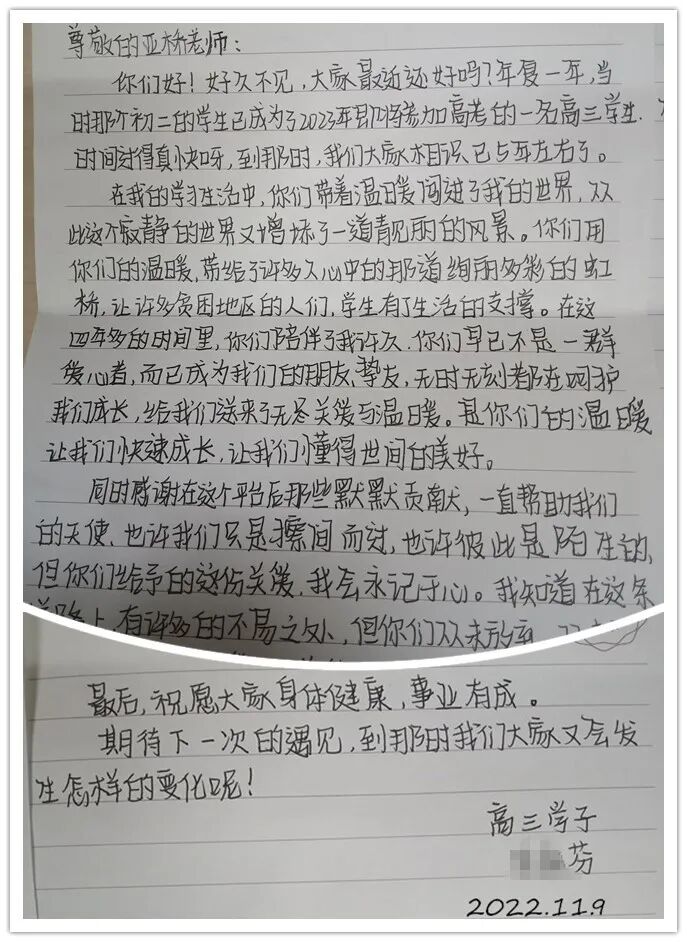 尊敬的亚桥老师：
你们好！好久不见，大家最近还好吗？年复一年，当
时那个初二的学生已成为了2023年即将参加高考的一名高三学生.
时间过得真快呀，到那时，我们大家相识已5年左右了。
在我的学习生活中，你们带着温暖闯进了我的世界，从
此这个寂静的世界又增添了一道靓丽的风景。你们用
你们的温暖，带给了许多人心中的那道绚丽多彩的虹
桥，让许多贫困地区的人们，学生有了生活的支撑。在这
四年多的时间里，你们陪伴了我许久.你们早已不是一群
爱心者，而已成为我们的朋友、挚友，无时无刻都在呵护
我们成长，给我们送来了无尽关爱与温暖。是你们的温暖
让我们快速成长，让我们懂得世间的美好。
同时感谢在这个平台后那些默默贡献，一直帮助我们
的天使、也许我们只是擦间而过，也许彼此是陌生的、
但你们给予的这份关爱，我会永记于心。我知道在这条
道路上，有许多的不易之处，但你们从未放弃
最后，祝愿大家身体健康，事业有成。
期待下一次的遇见，到那时我们大家又会发
生怎样的变化呢！
高三学子
芬
2022.11.9